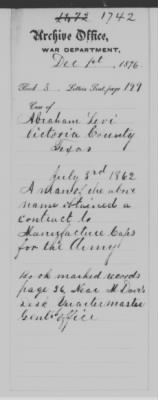 1742
Archive Office,
WAR DEPARTMENT,
Dec 1st, 1876.
Book 3 Letters Sent, page 199
Case of
Abraham Levi
Victoria County
Texas
July 3rd 1862
A man of the above
name obtained a
contract to
Manufacture Caps
for the Army
Book marked records
page 36, Near
Quartermaster
Genl's Office